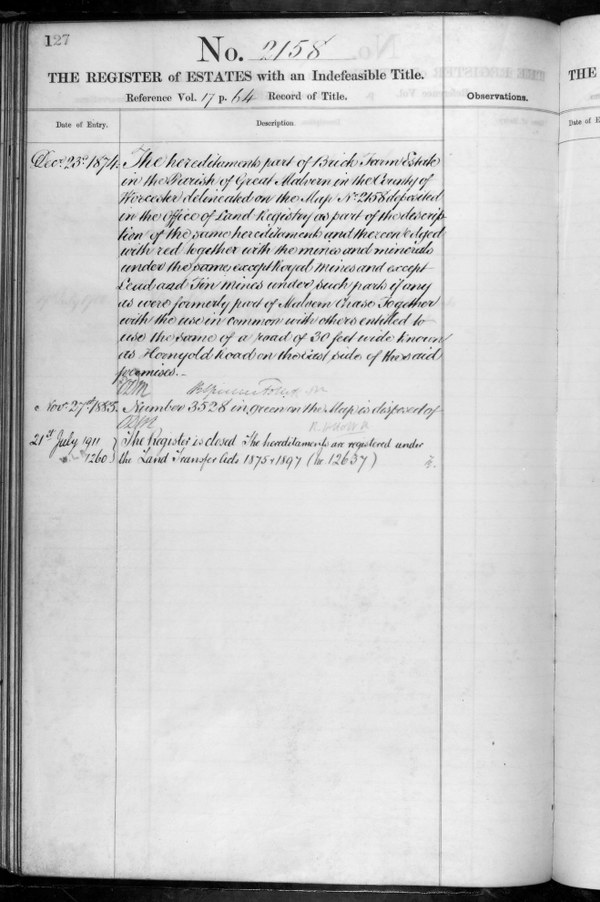 127
No. 2158
THE REGISTER of ESTATES with an Indefeasible Title.
Reference Vol. 17 p. 64 Record of Title.
Observations.
Date of Entry.
Description.
Decr. 23d. 1874. The hereditaments part of Brick Farm Estate
in the Parish of Great Malvern in the County of
Worcester delineated on the Map No. 2158 deposited
in the Office of Land Registry as part of the descrip-
tion of the same hereditaments and thereon edged
with red together with the mines and minerals
under the same except Royal Mines and except
Lead and Tin mines under such parts if any
as were formerly part of Malvern Chase Together
with the use in common with others entitled to
use the same of a road of 30 feet wide known
as Hornyold Road on the East side of the said
premises.
Novr. 27th 1883. Number 3528 in green on the Map is disposed of
21st July 1911 The Register is closed The hereditaments are registered under
1260 the Land Transfer Acts 1875 & 1897 (No. 12637)
THE
Date of E